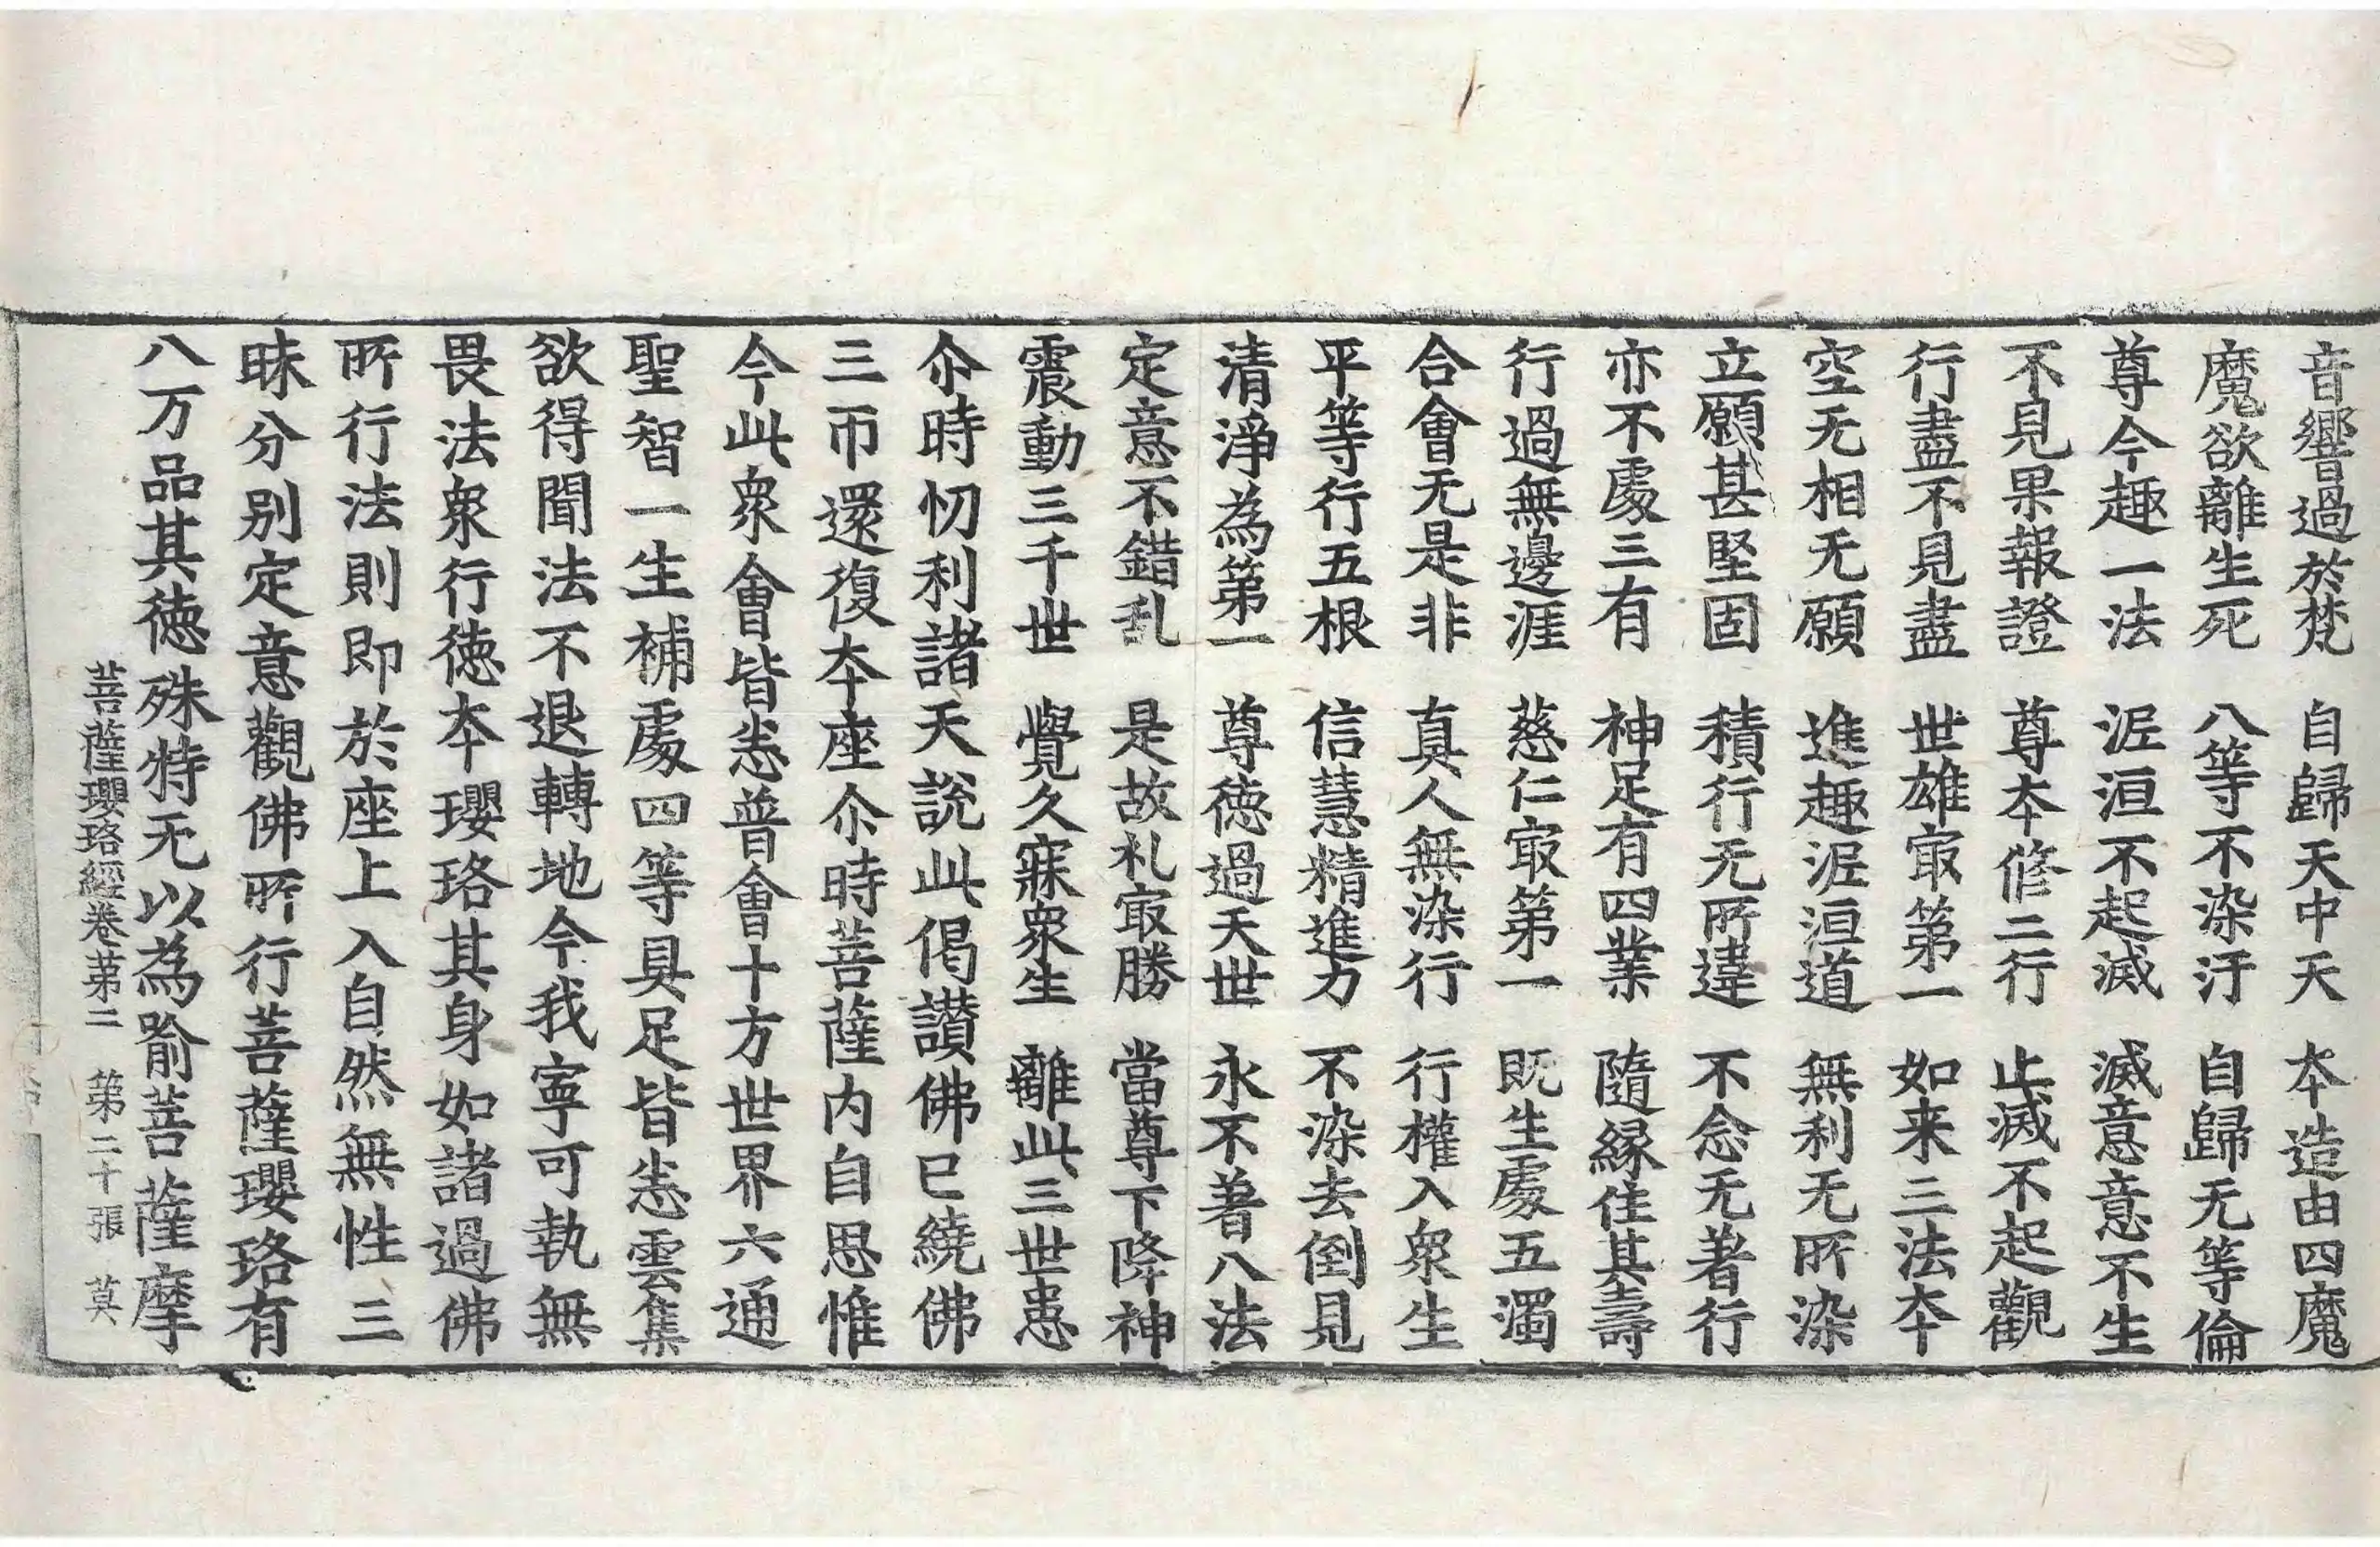 音響過於梵　自歸天中天　夲造由四魔
魔欲離生死　八等不染汙　自歸无等倫
尊今趣一法　泥洹不起滅　滅意意不生
不見果報證　尊夲修二行　止滅不起觀
行盡不見盡　世雄冣第一　如来三法夲
空无相无願　進趣泥洹道　無利无所染
立願甚堅固　積行无所違　不念无著行
亦不處三有　神足有四業　隨緣住其壽
行過無邊涯　慈仁冣第一　既生處五濁
合會无是非　真人無染行　行權入衆生
平等行五根　信慧精進力　不染去倒見
清淨為第一　尊徳過天世　永不著八法
定意不錯乱　是故礼冣勝　當尊下降神
震動三千世　覺久寐衆生　離此三世患
尒時忉利諸天說此偈讃佛已繞佛
三帀還復夲座尒時菩薩内自思惟
今此衆會皆悉普會十方世界六通
聖智一生補處四等具足皆悉雲集
欲得聞法不退轉地今我寧可執無
畏法衆行徳夲瓔珞其身如諸過佛
所行法則即於座上入自然無性三
昧分別定意觀佛所行菩薩瓔珞有
八万品其徳殊特无以為喻菩薩摩
菩薩瓔珞經卷第二　第二十張　莫